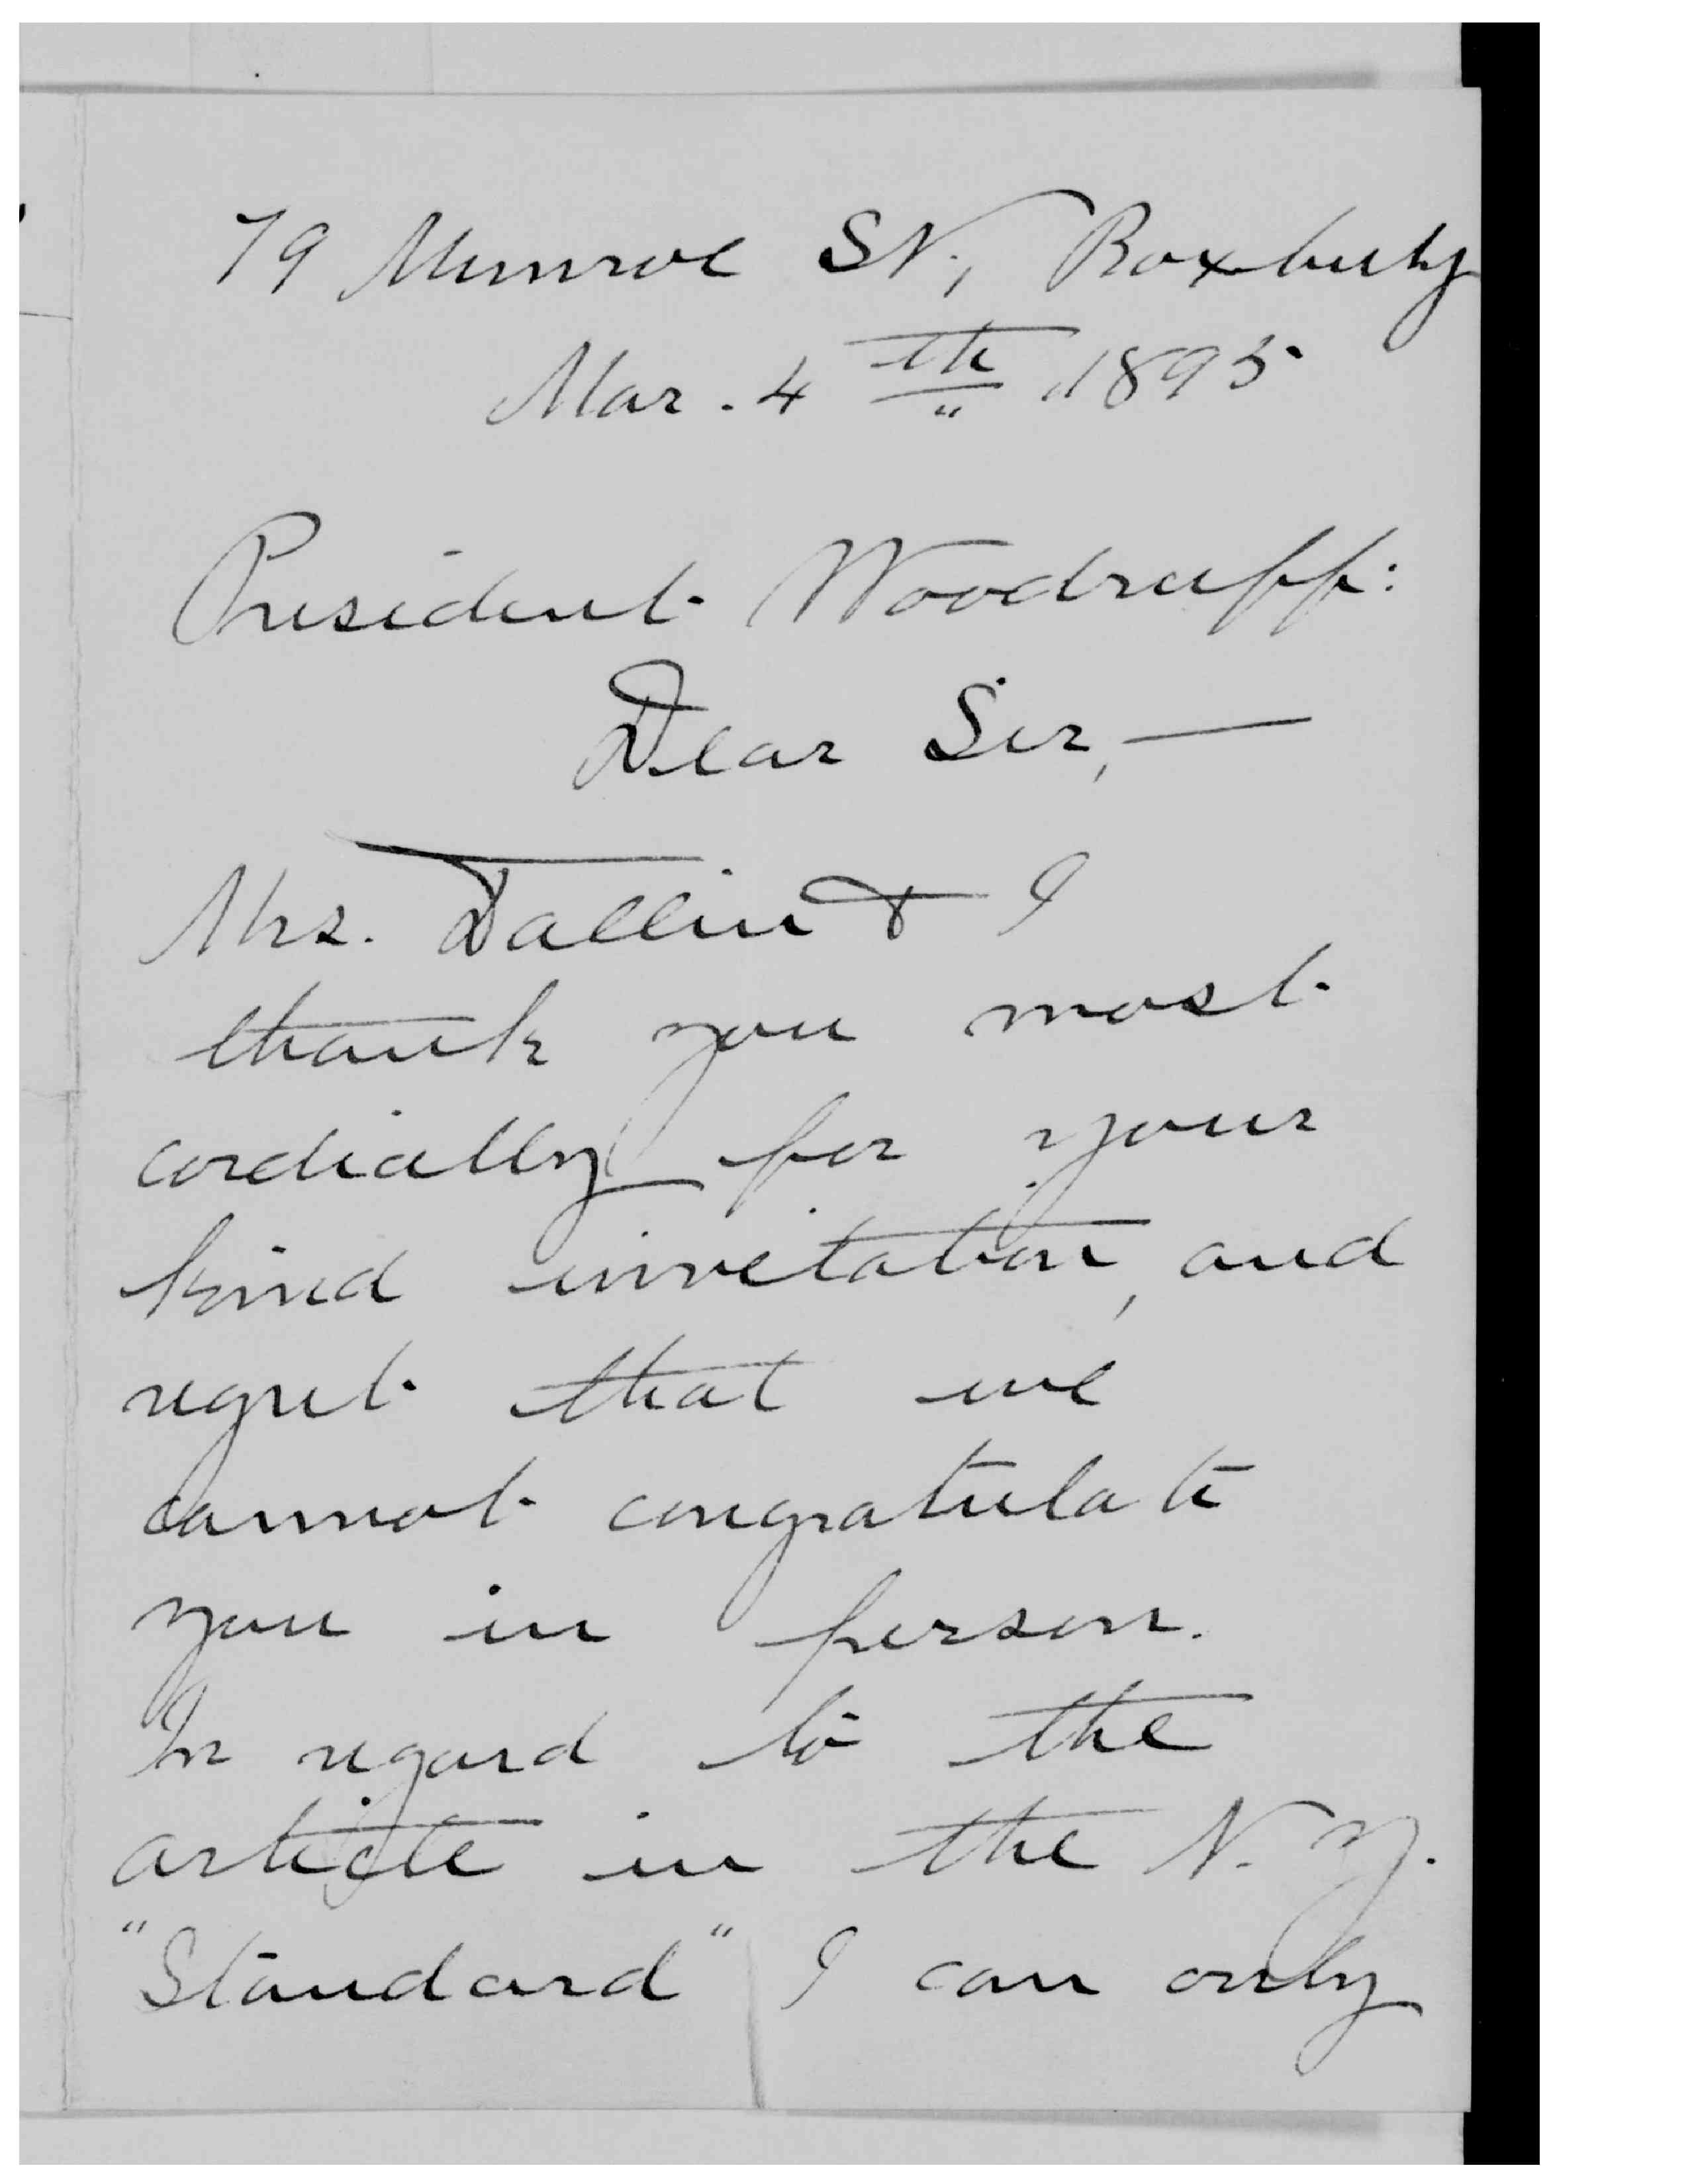 79 Munroe St., Roxbury
Mar. 4th 1895
President Woodruff:
Dear Sir,—
Mrs. Dallin & I
thank you most
cordially for your
kind invitation, and
regret that we
cannot congratulate
you in person.
In regard to the
article in the N. Y.
"Standard" I can only